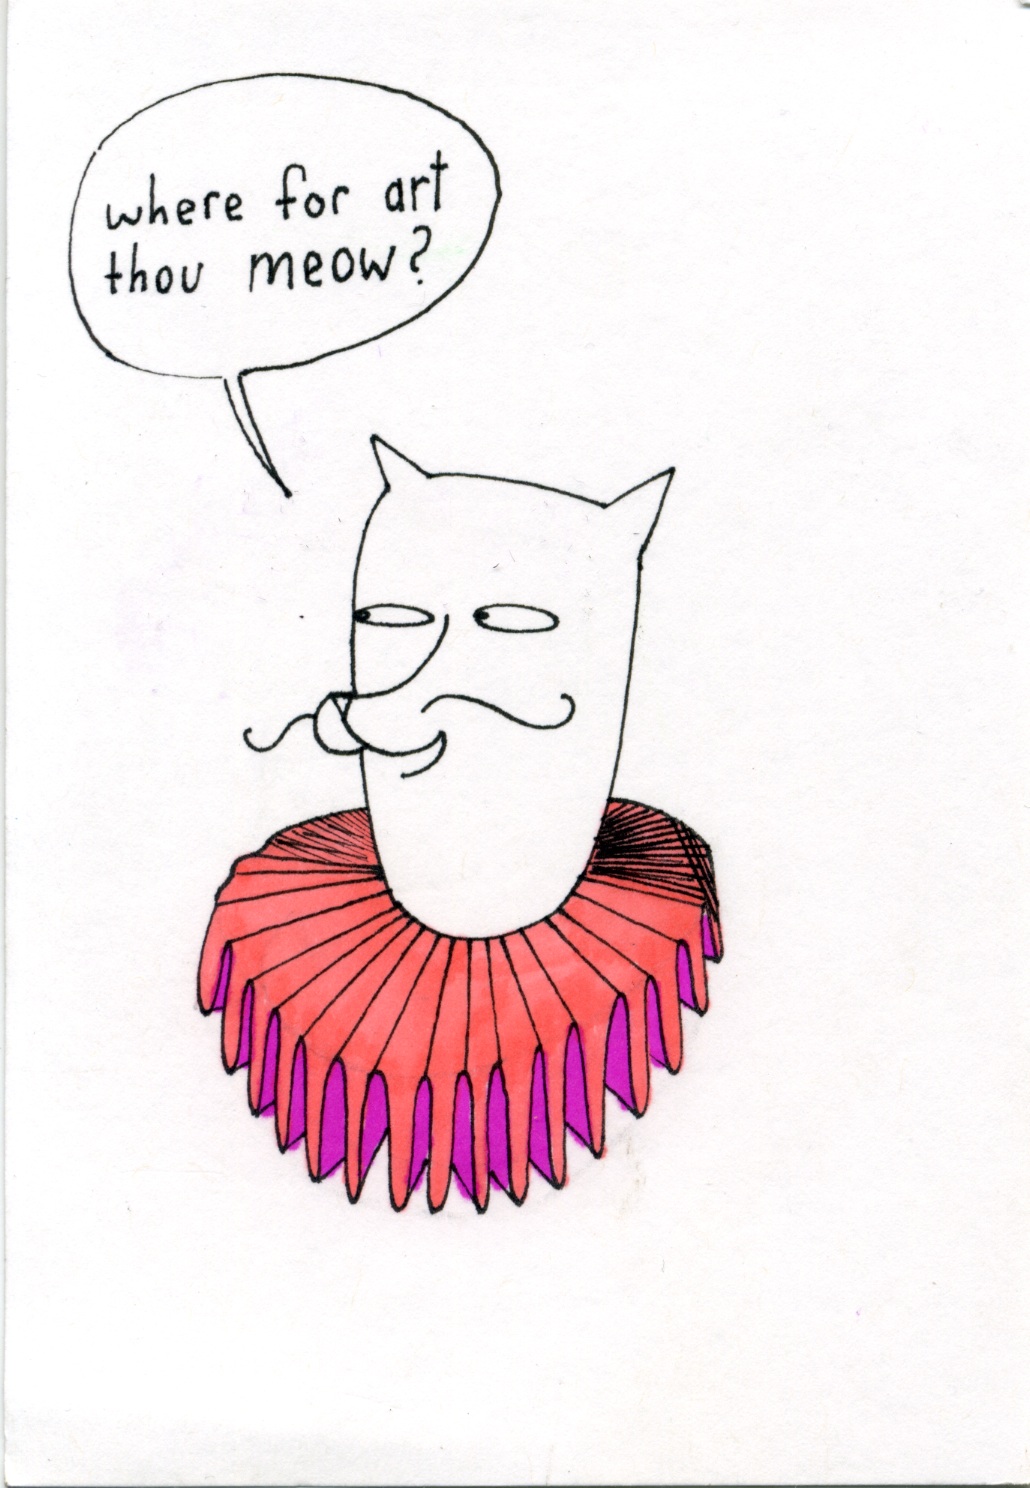 where for art
thou meow?